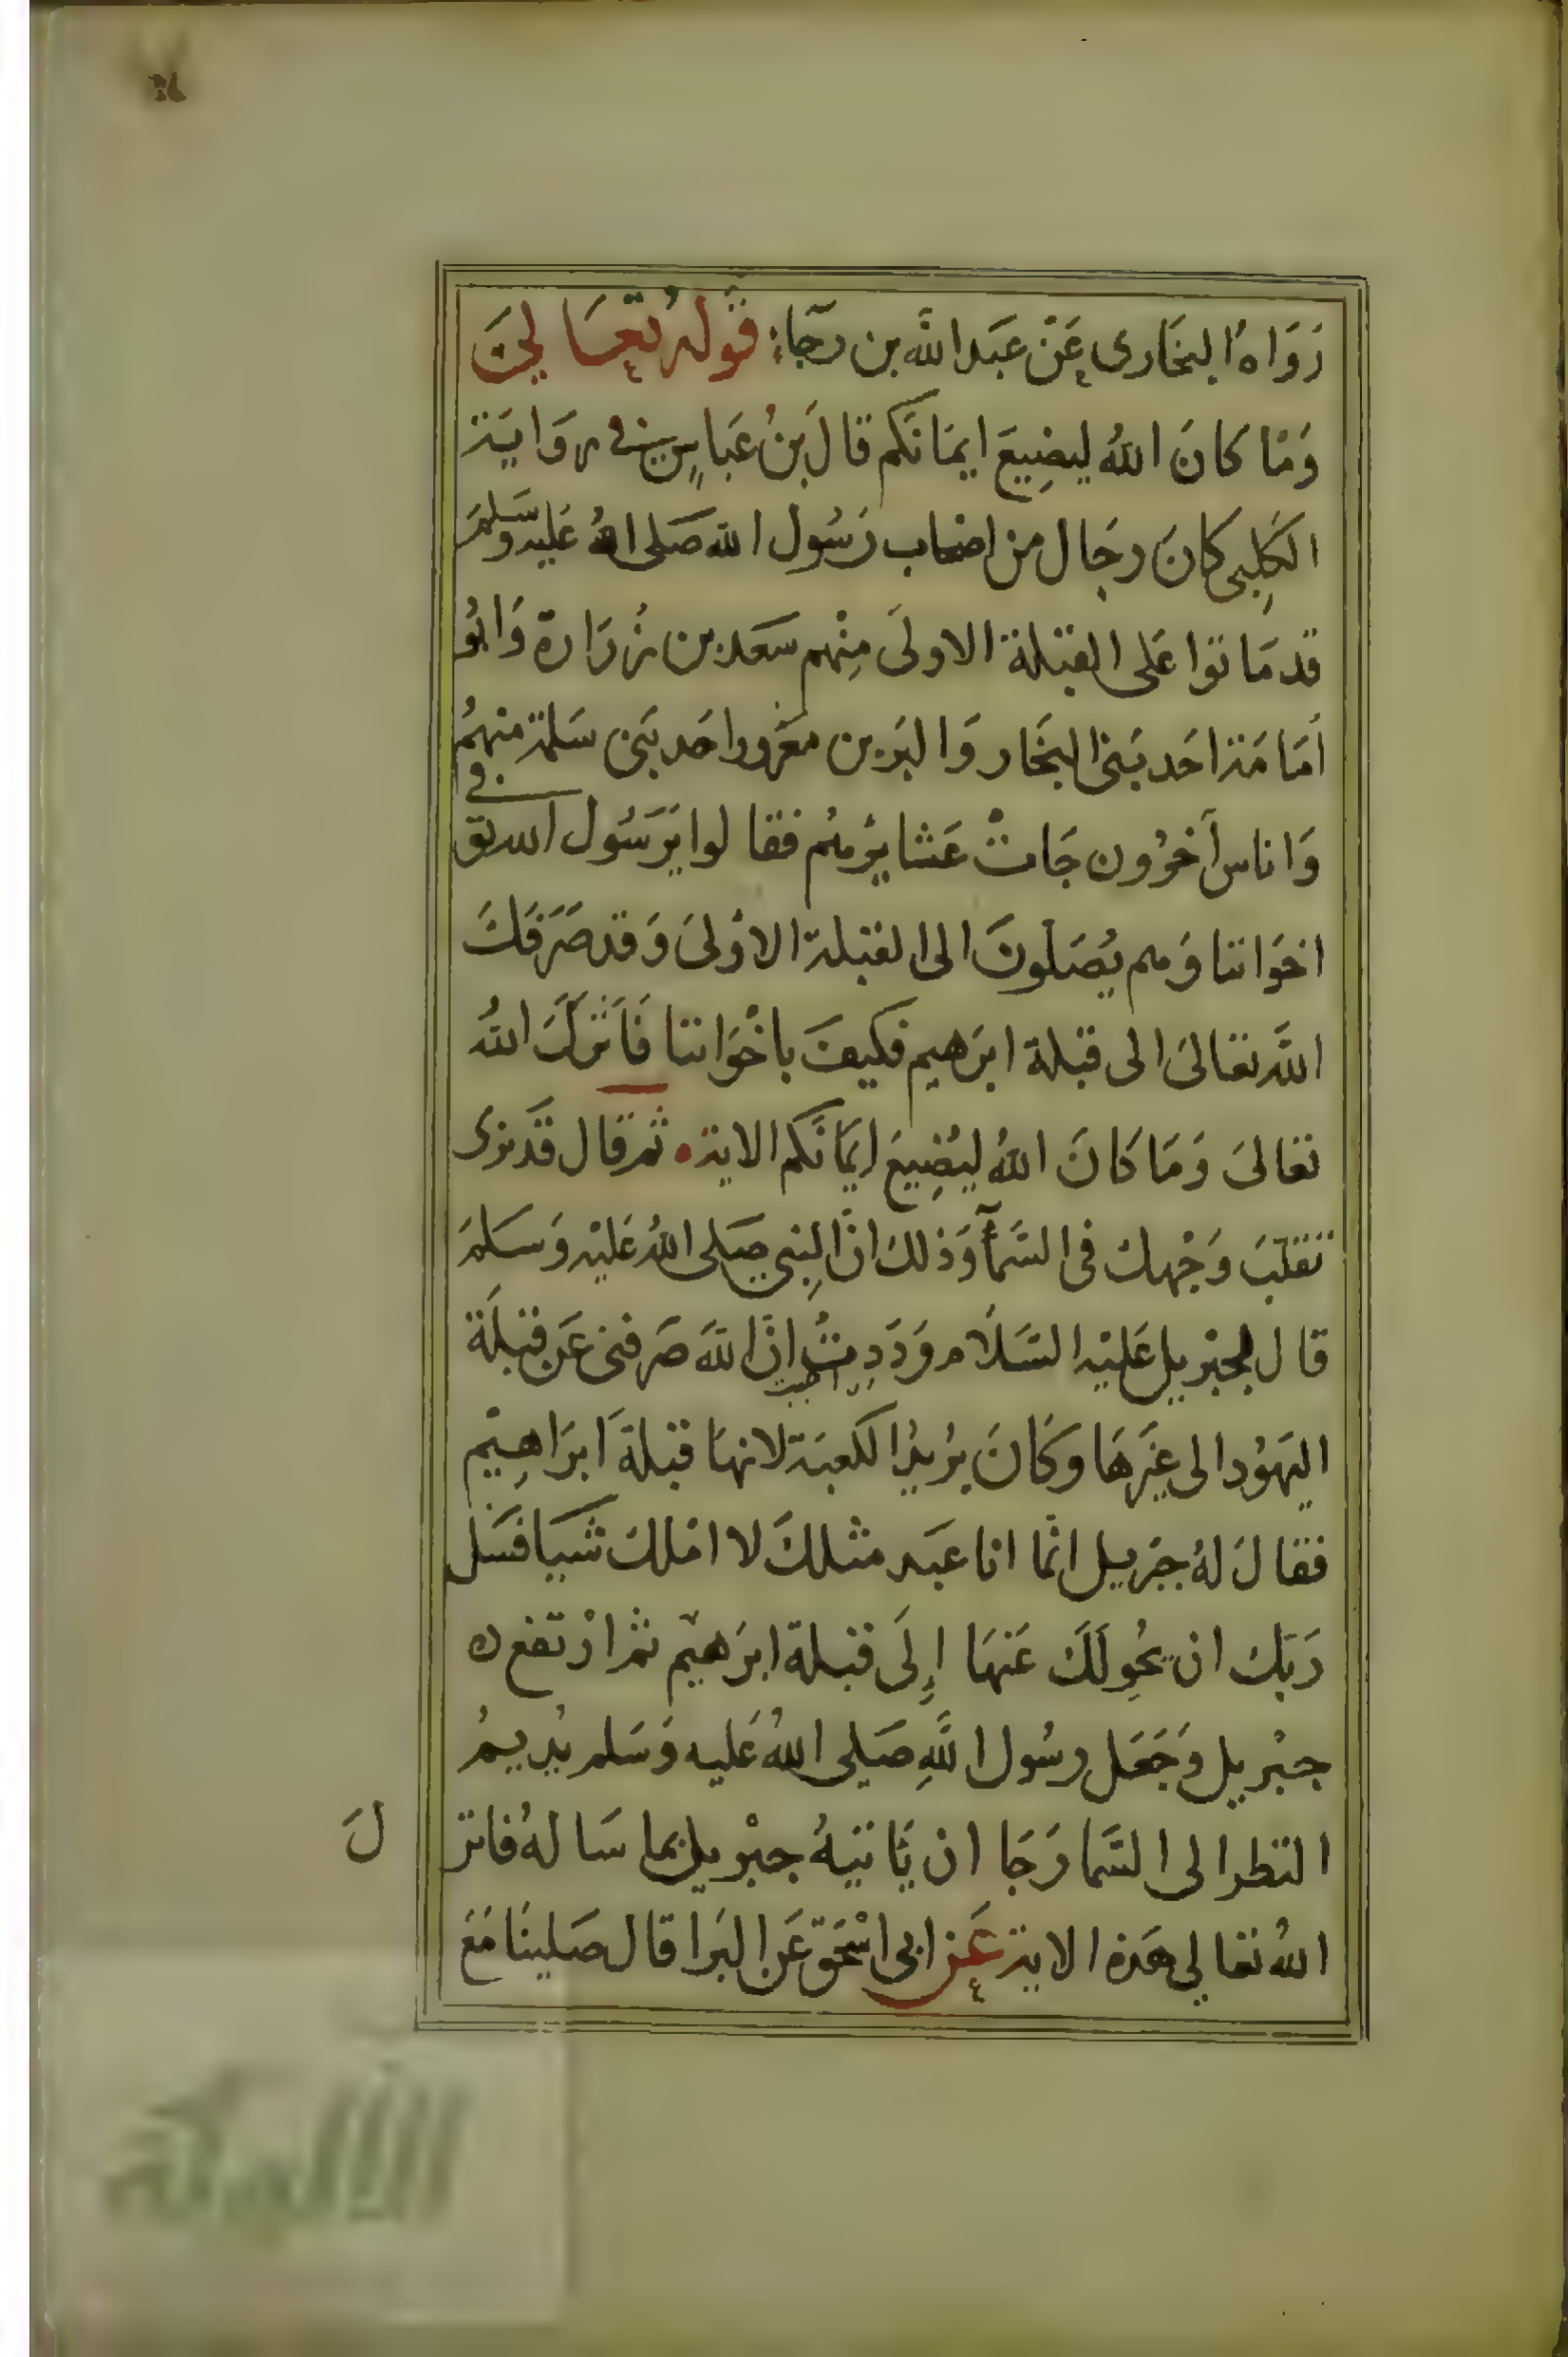 رَوَاهُ البخَارى عَنْ عَبَد اللَّه بن رَجَاء؛ قَولهُ تعَالىَ
وَمَا كانَ اللهُ ليضِيعَ ايمَانكم قالَ بنُ عَبَاسٍ في روَايَة
الكَلِبى كانَ رجَال من اصْحاب رَسُول الله صَلى اللهُ عَليه وَسَلمَ
قد مَاتوا عَلى القبْلة الاولىَ مِنْهم سَعَد بن زُرَارة وَابُو
اُمَامَة احَد بَنى النَجَار وَالبَر بن مَعْرور احَد بَنى سَلمَة منهمُ
وَاناس آخَرُون جَاتْ عَشَايرُهُم فقالوا يَرَسُول الله توفي
اخوَاننا وَهم يُصَلونَ الى القبْلة الاوْلىَ وَقد صَرَفَكَ
اللَّه تعَالىَ الى قبْلة ابرَهيم فكيفَ باخْوَاننا فَانزَلَ الله
تعَالىَ وَمَا كَانَ اللهُ ليُضِيعَ ايمَانَكم الاية. ثم قال قَد نرَى
تقلبَ وَجْهِك في السَّمآءِ وَذلك انَّ النِبى صَلى اللهُ عَليْه وَسَلمَ
قال لجبْريل عَليْه السَّلَام وَدَدِتُ انَّ اللهَ صَرفنى عَن قبْلَة
احببت
اليَهوُد الى غيَرهَا وكَانَ يرُيدُ الكعبَة لانهَا قبْلةَ ابرَاهِيْم
فقالَ لهُ جبْريل انَّما انا عَبَد مثلكَ لا امْلك شَيا فسَل
رَبَّك ان يُحِولَكَ عَنهَا إلَى قبْلة ابرَهيْم ثمَّ ارْتفع ه
جبْريل وَجَعَل رسُول اللَّهِ صَلى اللهُ عَليه وَسَلم يُديمُ
النظر الى السَّما رَجَا ان يَاتيَهُ جبْريل بما سَالهُ فانز لَ
اللهُ تعَالى هَذه الاية عَن ابى اسْحَق عَن البَرا قال صَلينَا مَعَ
الألوكة